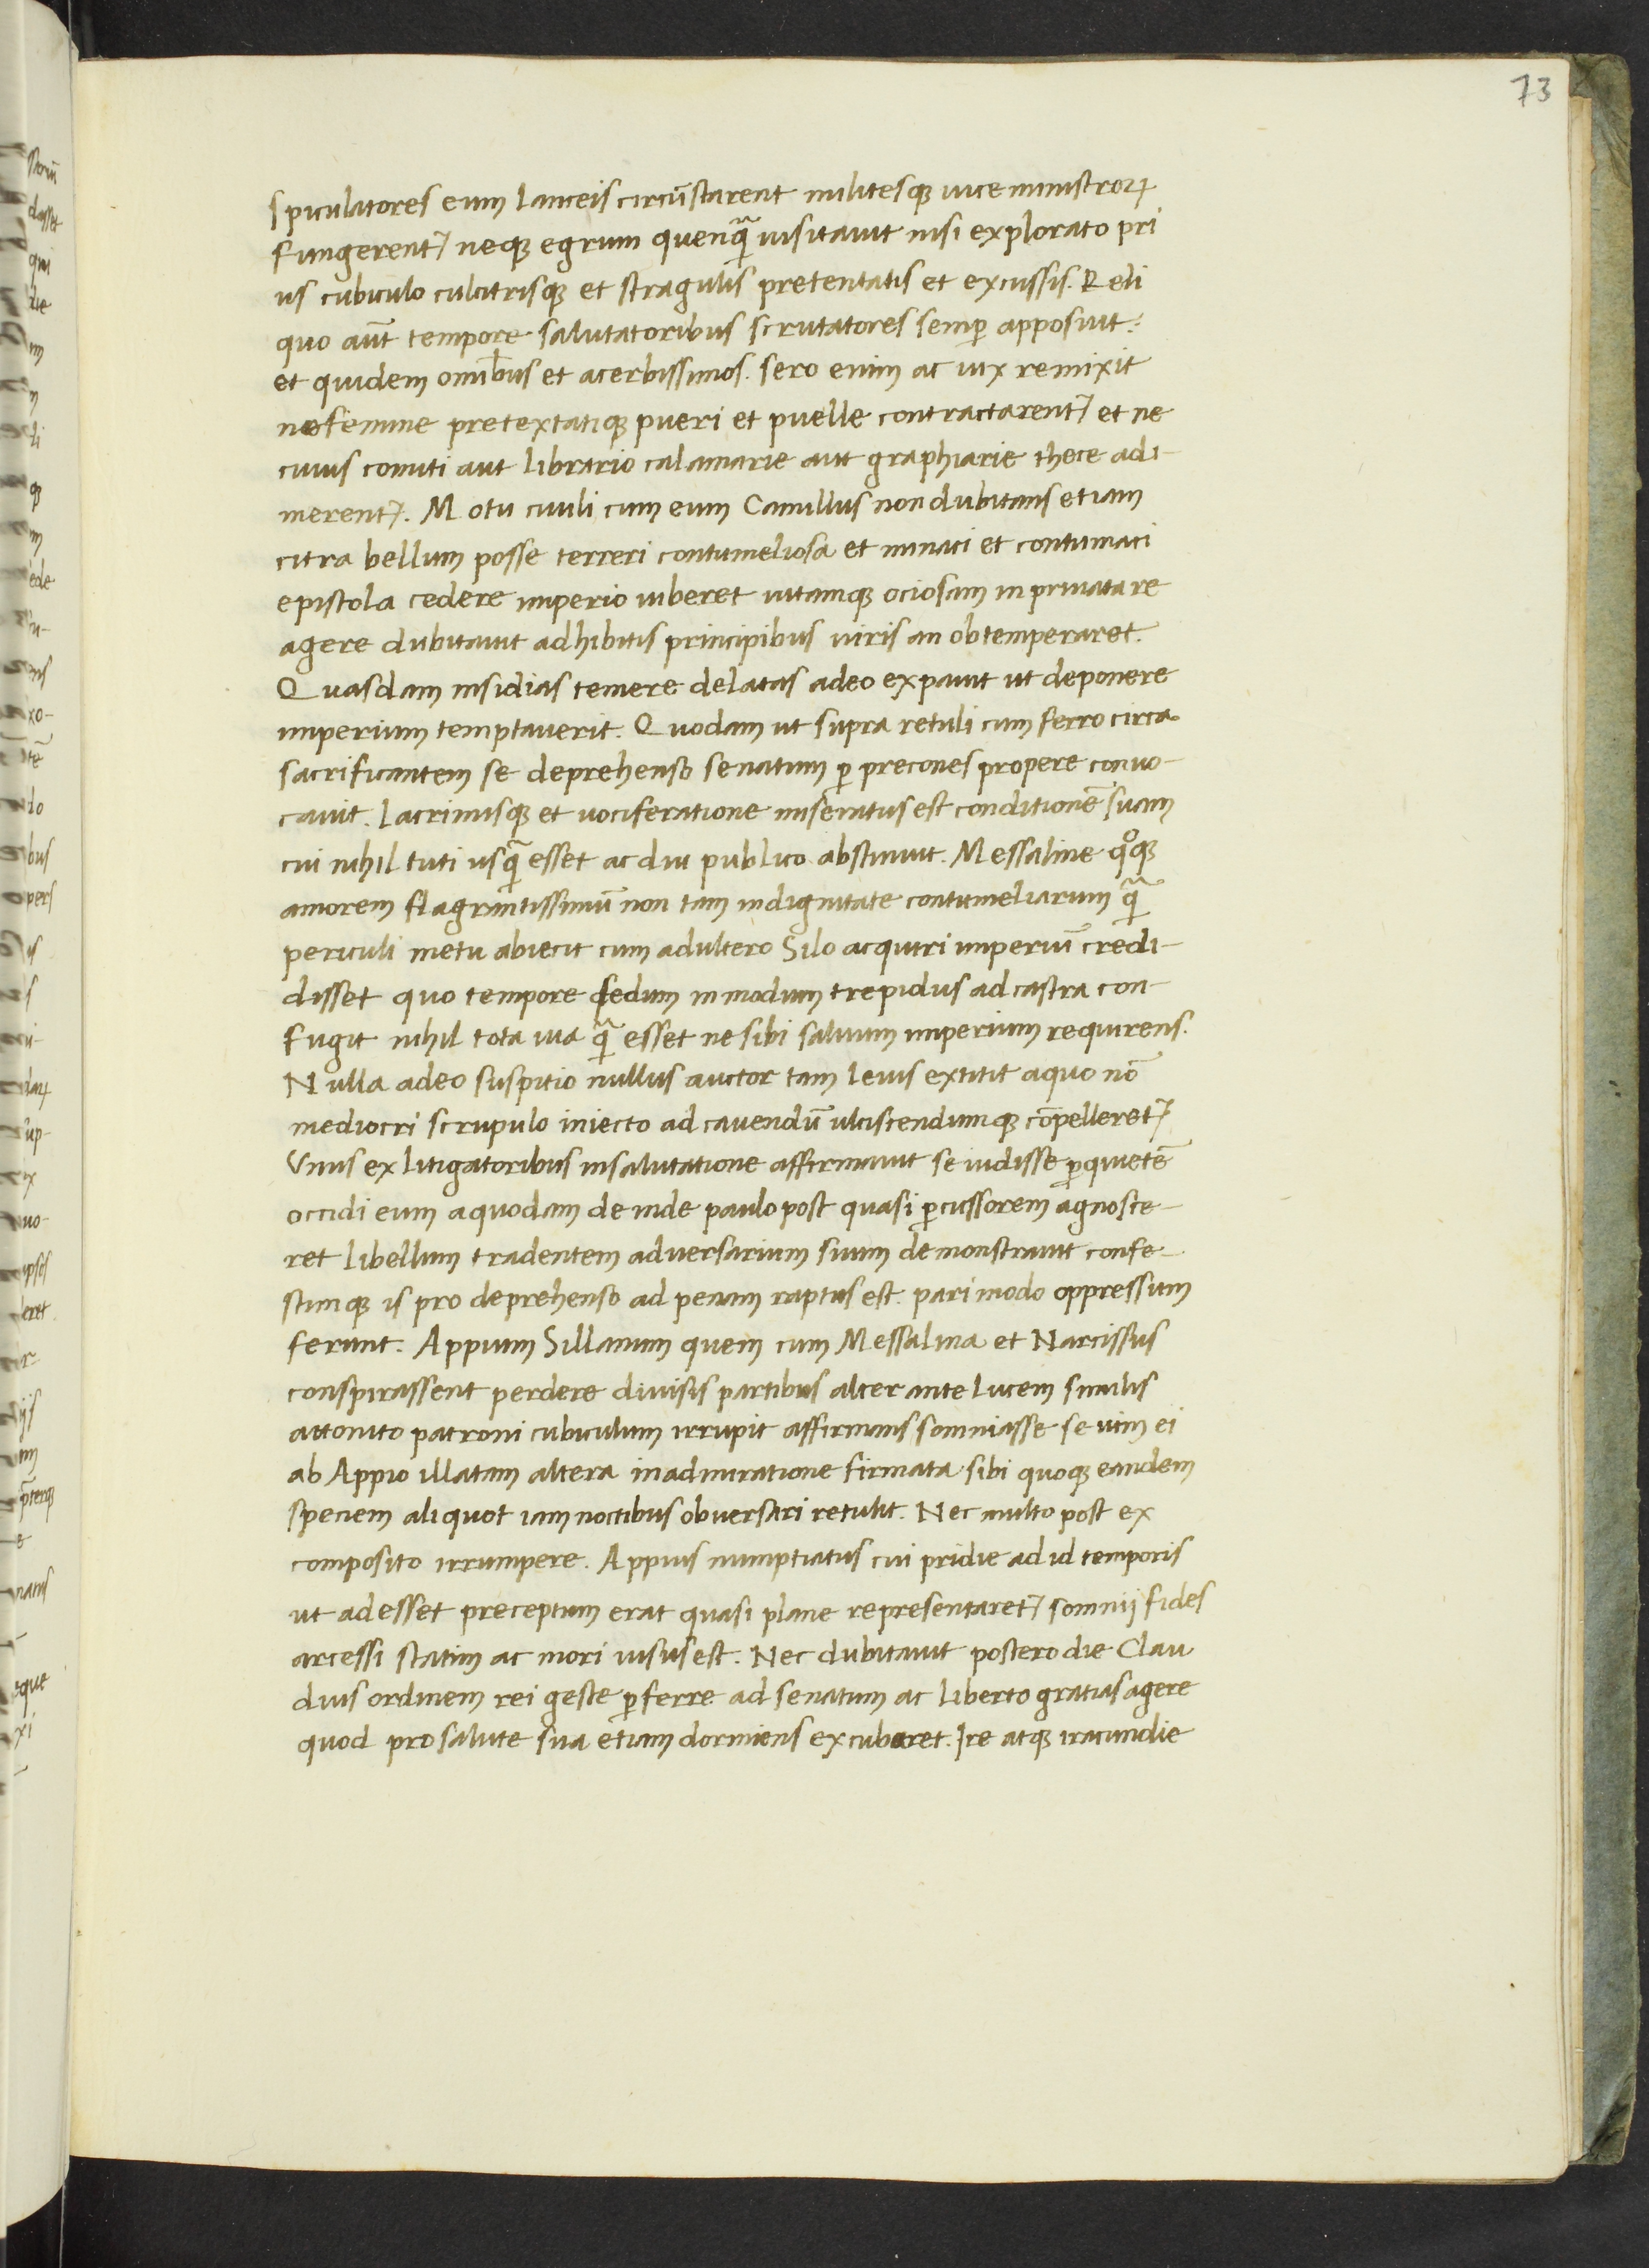 73
spiculatores eum lanceis circūstarent militesqꝫ uice ministroꝝ
fungerent᷑ neqꝫ egrum quenqᷓ uisitauit nisi explorato pri
us cubiculo culcitrisqꝫ et stragulis pretentatis et excussis. Reli
quo aūt tempore salutatoribus scrutatores semꝑ apposuit.
et quidem omībus et acerbissimos. sero enim ac uix remixit
ne femine pretextatiqꝫ pueri et puelle contractarent᷑ et ne
cuius comiti aut librario calamarie aut graphiarie thece adi-
merent᷑. Motu ciuili cum eum Camillus non dubitans etiam
citra bellum posse terreri contumeliosa et minaci et contumaci
epistola cedere imperio iuberet uitamqꝫ ociosam in priuata re
agere dubitauit adhibitis principibus uiris an obtemperaret.
Quasdam insidias temere delatas adeo expauit ut deponere
imperium temptauerit. Quodam ut supra retuli cum ferro circa
sacrificantem se deprehenso senatum ꝑ precones propere conuo-
cauit. lacrimisqꝫ et uociferatione miseratus est conditionē suam
cui nihil tuti usqᷓ esset ac diu publico abstinuit. Messaline qͦqꝫ
amorem flagrantissimū non tam indignitate contumeliarum qᷓ
periculi metu abiecit cum adultero Silo acquiri imperiū credi-
disset quo tempore fedum in modum trepidus ad castra con-
fugit nihil tota uia qᷓ esset ne sibi saluum imperium requirens.
Nulla adeo suspitio nullus auctor tam leuis extitit a quo nō
mediocri scrupulo iniecto ad cauendū ulciscendumqꝫ cōpelleret᷑
Vnus ex litigatoribus in salutatione affirmauit se uidisse ꝑ quietē
occidi eum a quodam deinde paulo post quasi ꝑcussorem agnosce-
ret libellum tradentem aduersarium suum demonstrauit confe-
stimqꝫ is pro deprehenso ad penam raptus est. pari modo oppressum
ferunt. Appium Sillanum quem cum Messalina et Narcissus
conspirassent perdere diuisis partibus alter ante lucem similis
attonito patroni cubiculum irrupit affirmans somniasse se uim ei
ab Appio illatam altera in admiratione firmata sibi quoqꝫ eandem
speciem aliquot iam noctibus obuersari retulit. Nec multo post ex
composito irrumpere. Appius numptiatus cui pridie ad id temporis
ut adesset preceptum erat quasi plane representaret᷑ somnij fides
arcessi statim ac mori iusus est. Nec dubitauit postero die Clau
dius ordinem rei geste ꝑferre ad senatum ac liberto gratias agere
quod pro salute sua etiam dormiens excubaret. Ire atqꝫ iracundie